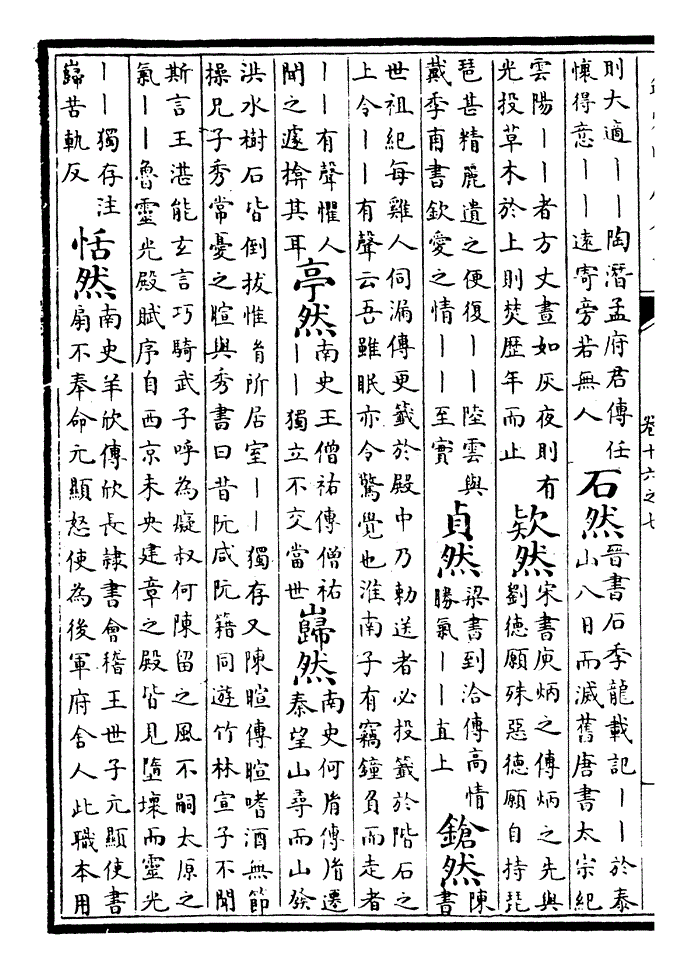 則大適丨丨陶潛孟府君傳任
懷得意丨丨遠寄旁若無人
石然
晉書石季龍載記丨丨於泰
山八日而滅舊唐書太宗紀
雲陽丨丨者方丈晝如灰夜則有
光投草木於上則焚歷年而止
欵然
宋書庾炳之傳炳之先與
劉德願殊惡德願自持琵
琶甚精麗遺之便復丨丨陸雲與
戴季甫書欽愛之情丨丨至實
貞然
梁書到洽傳高情
勝氣丨丨直上
鎗然
陳
書
世祖紀每雞人伺漏傳更籤於殿中乃勅送者必投籤於階石之
上令丨丨有聲云吾雖眠亦令驚覺也淮南子有竊鐘負而走者
丨丨有聲懼人
聞之遽揜其耳
亭然
南史王僧祐傳僧祐
丨丨獨立不交當世
巋然
南史何𦙍傳𦙍遷
秦望山尋而山發
洪水樹石皆倒拔惟𦙍所居室丨丨獨存又陳暄傳暄嗜酒無節
操兄子秀常憂之暄與秀書曰昔阮咸阮籍同遊竹林宣子不聞
斯言王湛能玄言巧騎武子呼為癡叔何陳留之風不嗣太原之
氣丨丨魯靈光殿賦序自西京未央建章之殿皆見隳壞而靈光
丨丨獨存注
巋苦軌反
恬然
南史羊欣傳欣長隷書會稽王世子元顯使書
扇不奉命元顯怒使為後軍府舍人此職本用
卷十六之七